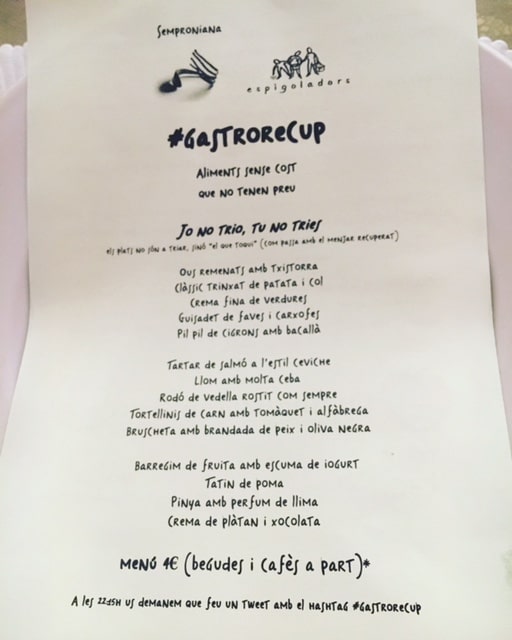 SEMPRONIANA
espigoladors
#GASTRORECUP
ALIMENTS SENSE COST
QUE NO TENEN PREU
JO NO TRIO, TU NO TRIES
ELS PLATS NO SÓN A TRIAR, SINÓ "EL QUE TOQUI" (COM PASSA AMB EL MENJAR RECUPERAT)
OUS REMENATS AMB TXISTORRA
CLÀSSIC TRINXAT DE PATATA I COL
CREMA FINA DE VERDURES
GUISADET DE FAVES I CARXOFES
PIL PIL DE CIGRONS AMB BACALLÀ
TARTAR DE SALMÓ A L'ESTIL CEVICHE
LLOM AMB MOLTA CEBA
RODÓ DE VEDELLA ROSTIT COM SEMPRE
TORTELLINIS DE CARN AMB TOMÀQUET I ALFÀBREGA
BRUSCHETA AMB BRANDADA DE PEIX I OLIVA NEGRA
BARREGIM DE FRUITA AMB ESCUMA DE IOGURT
TATIN DE POMA
PINYA AMB PERFUM DE LLIMA
CREMA DE PLÀTAN I XOCOLATA
MENÚ 4€ (BEGUDES I CAFÈS A PART)*
A LES 22:15H US DEMANEM QUE FEU UN TWEET AMB EL HASHTAG #GASTRORECUP